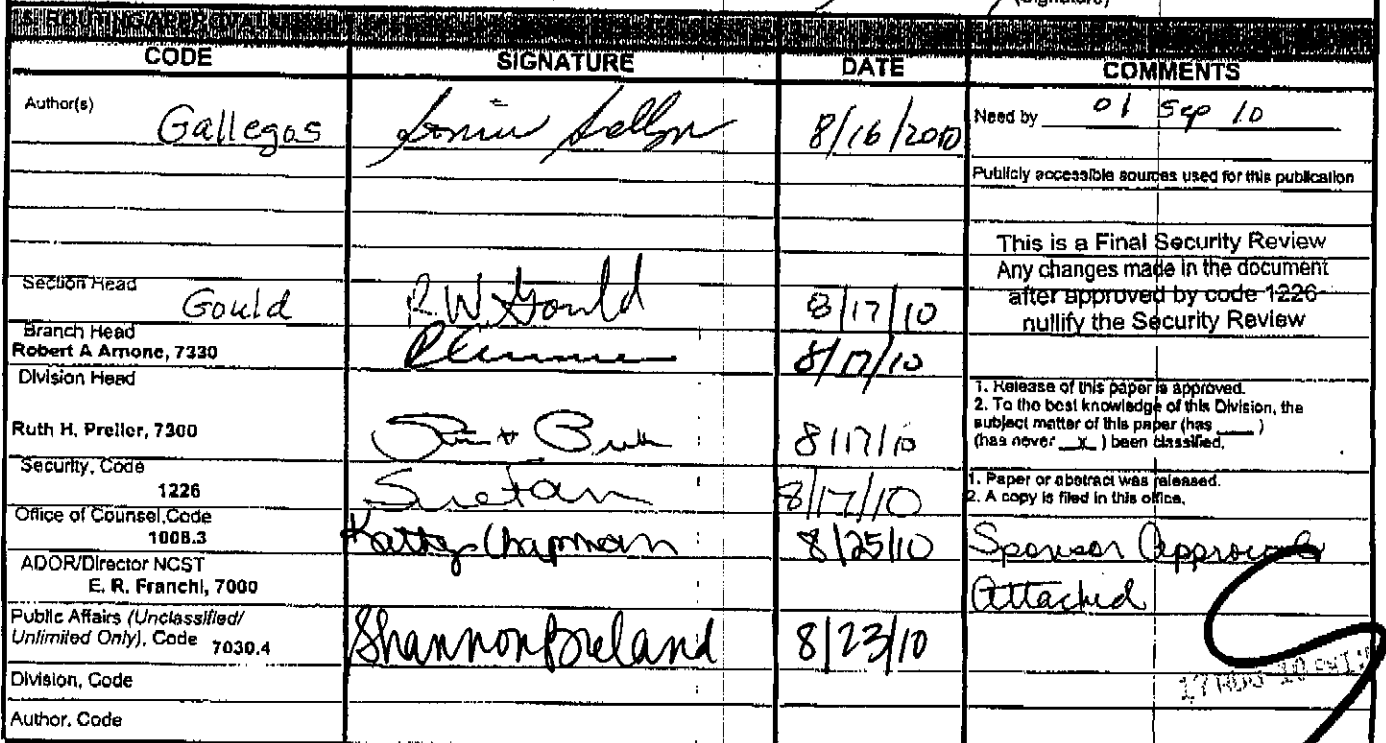 (Signature)
5. ROUTING/APPROVAL
CODE SIGNATURE DATE COMMENTS
Author(s)
Gallegos 8/16/2010 Need by 01 Sep 10
Publicly accessible sources used for this publication
This is a Final Security Review
Any changes made in the document
after approved by code 1226
nullify the Security Review
Section Head
Gould R.W. Gould 8/17/10
Branch Head
Robert A Arnone, 7330 8/17/10
Division Head
1. Release of this paper is approved.
2. To the best knowledge of this Division, the
subject matter of this paper (has ____ )
(has never _x_ ) been classified.
Ruth H. Preller, 7300 8/17/10
Security, Code
1226 8/17/10
1. Paper or abstract was released.
2. A copy is filed in this office.
Office of Counsel,Code
1008.3 Kathy Chapman 8/25/10 Sponsor approval
attached
ADOR/Director NCST
E. R. Franchi, 7000
Public Affairs (Unclassified/
Unlimited Only), Code 7030.4 Shannon Breland 8/23/10
Division, Code
Author, Code